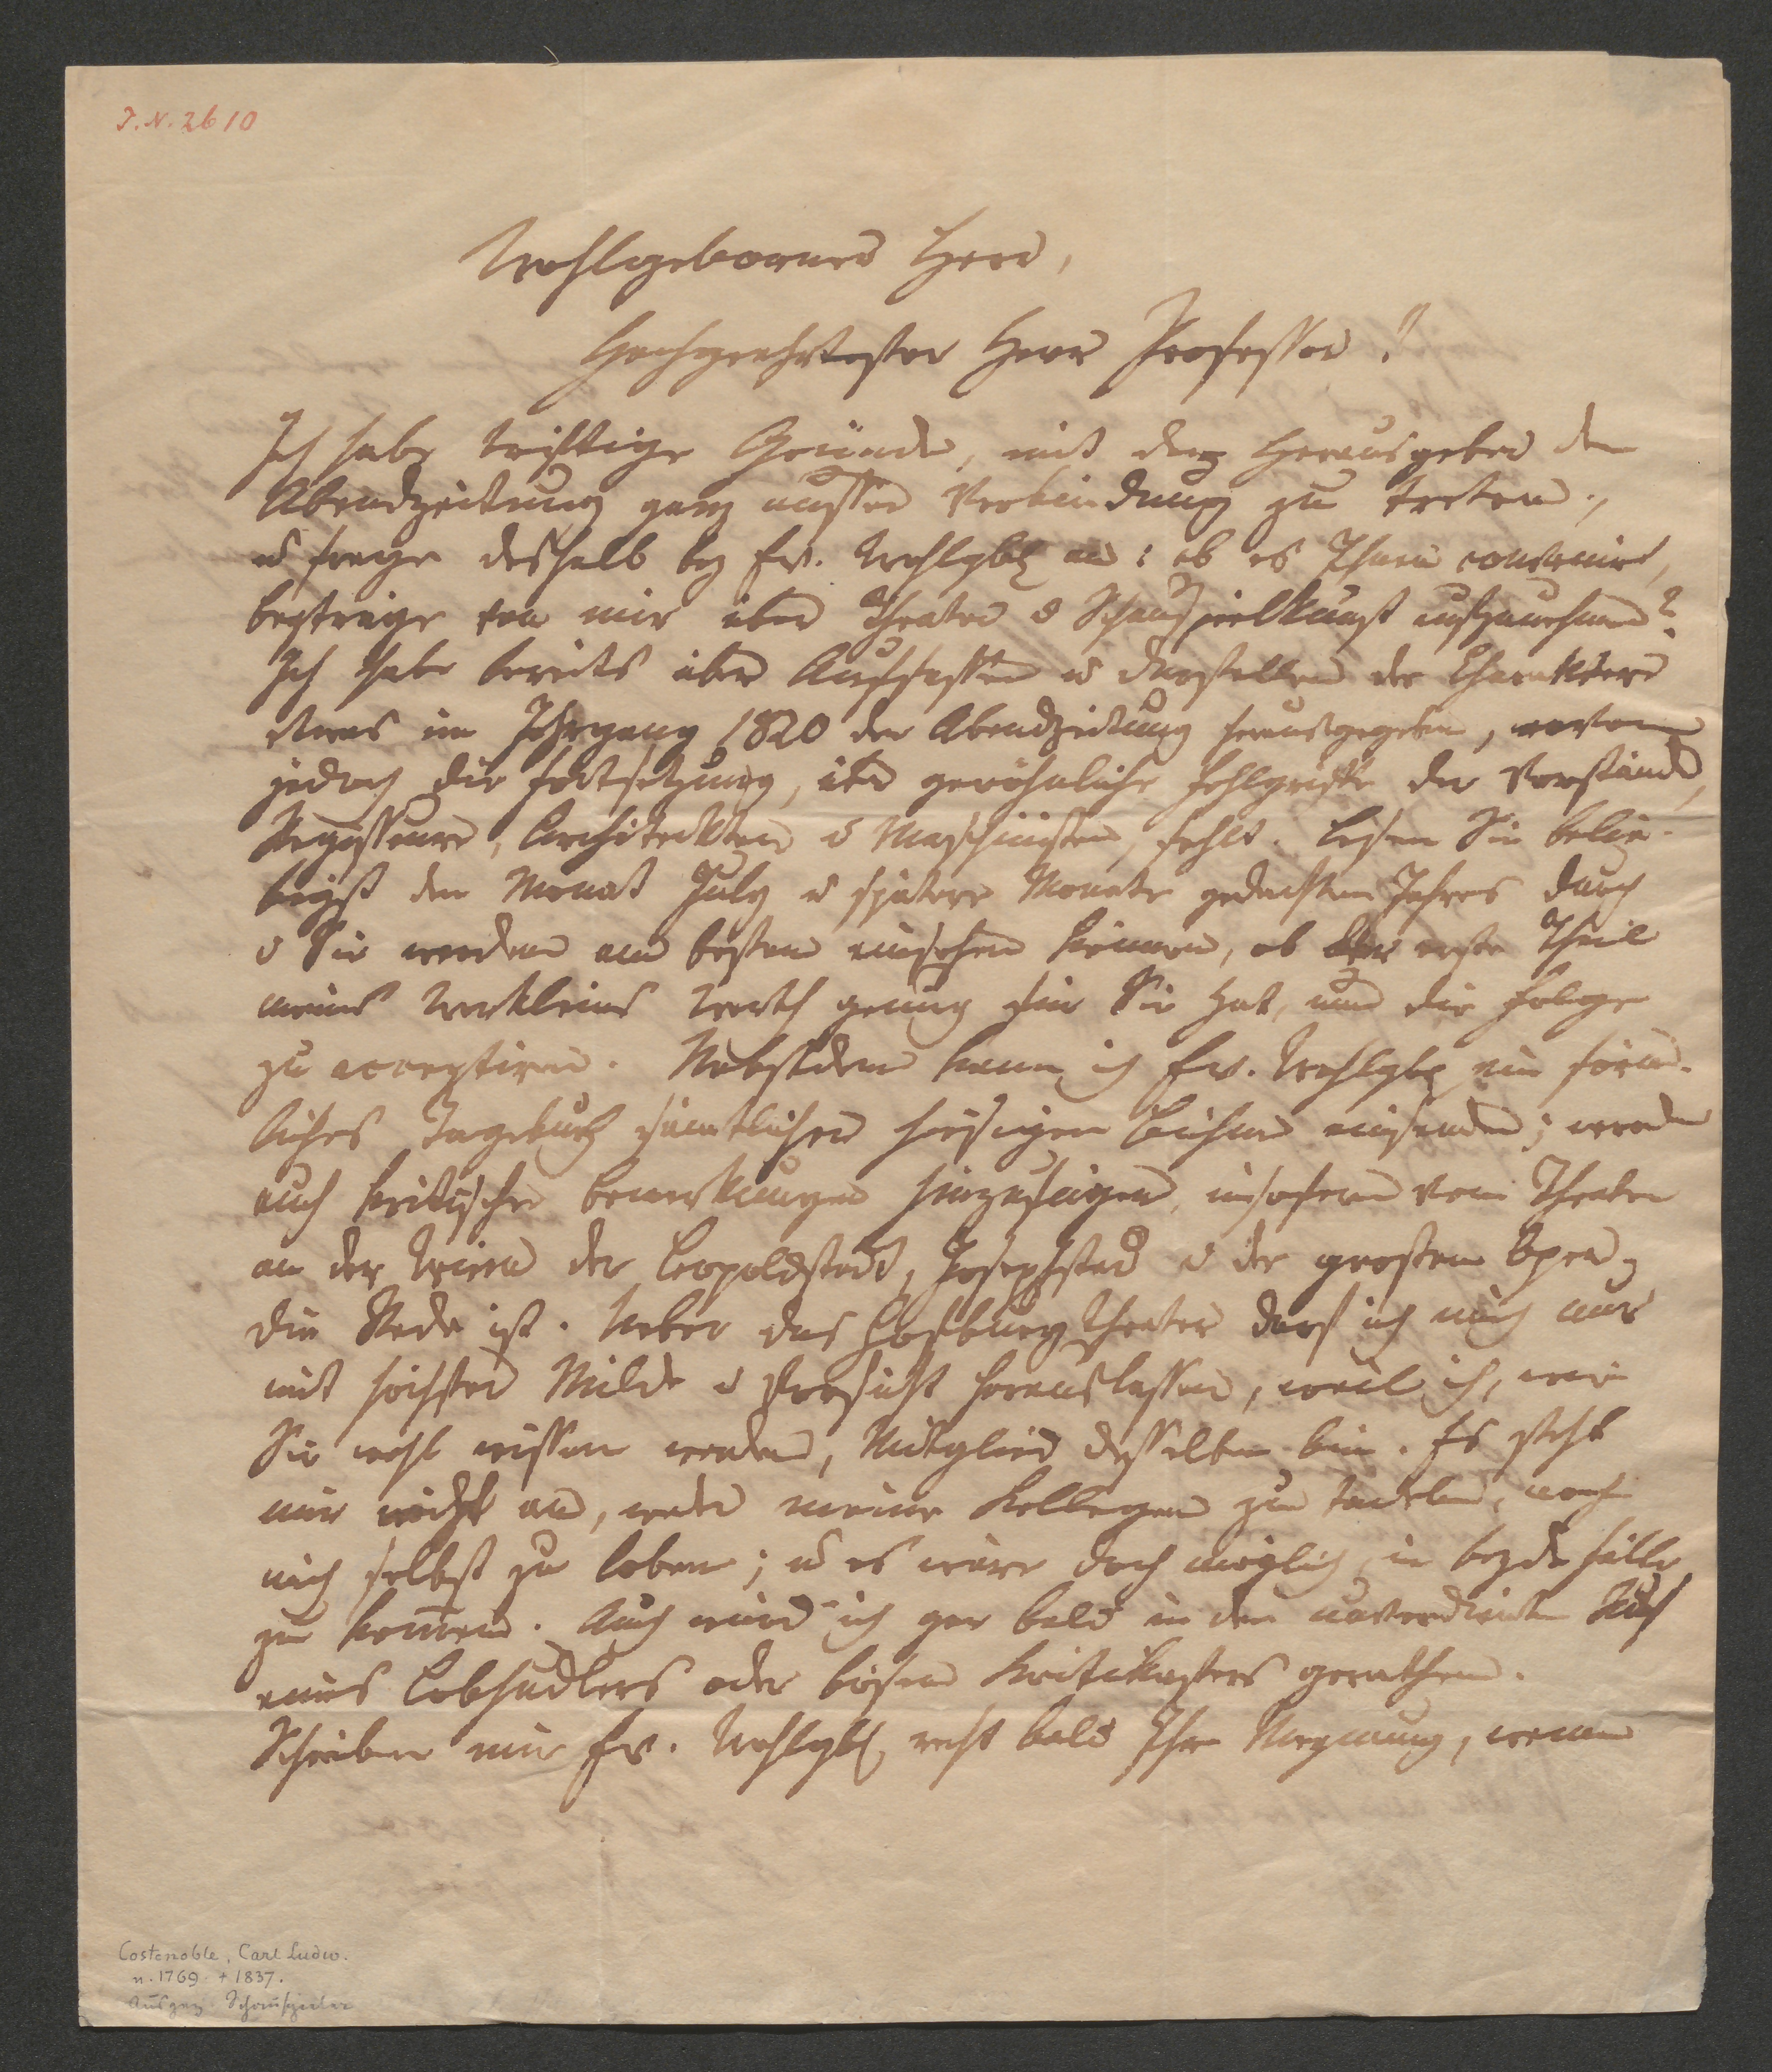 I. N. 2610
Wohlgeborner Herr,
Hochgeehrtester Herr Professor!
Ich habe triftige Gründe, mit dem Herausgeber der
Abendzeitung ganz ausser Verbindung zu treten,
u frage deshalb bey Ew. Wohlgb. an: ob es Ihnen convenirt,
Beyträge von mir über Theater u Schauspielkunst aufzunehmen?
Ich habe bereits über Auffassen u Darstellen der Charaktere
etwas im Jahrgang 1820 der Abendzeitung herausgegeben, wovon
jedoch die Fortsetzung, über gewöhnliche Fehlgriffe der Vorstände,
Regisseure, Architekten u Maschinisten, fehlt. Lesen Sie belie-
bigst den Monat July u spätere Monate gedachten Jahres durch
u Sie werden am besten einsehen können, ob der erste Theil
meines Werkleins Werth genug für Sie hat, um die Folge
zu acceptiren. Nebstdem kann ich Ew. Wohlgb. ein förm-
liches Tagebuch sämtlicher hiesigen Bühnen einsenden; werde
auch kritische Bemerkungen hinzufügen, insofern vom Theater
an der Wien der Leopoldstadt, Josephstad u der grossen Oper
die Rede ist. Ueber das Hofburgtheater darf ich mich nur
mit höchster Milde u Vorsicht herauslassen, weil ich, wie
Sie wohl wissen werden, Mitglied desselben bin. Es steht
mir nicht an, weder meine Kollegen zu tadeln, noch
mich selbst zu loben; u es wäre doch möglich in beyde Fälle
zu kom̄en. Auch würd' ich gar bald in den unverdienten Ruf
eines Lobhudlers oder bösen Kritikasters gerathen.
Schreiben mir Ew. Wohlgb. recht bald Ihre Meynung, wenn
Costenoble, Carl Ludw.
n. 1769 + 1837.
Ausgez. Schauspieler